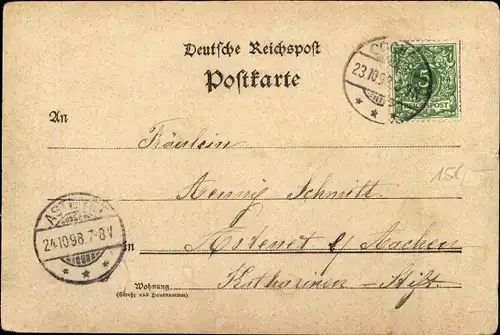 Deutsche Reichspost
Postkarte
23.10.98
5
REICHSPOST
An
Fräulein
Henny Schmitt
ASTENET
24.10.98.7-8V
in Astenet b/ Aachen
Katharinen-Stift.
Wohnung
(Straße und Hausnummer)
15,-